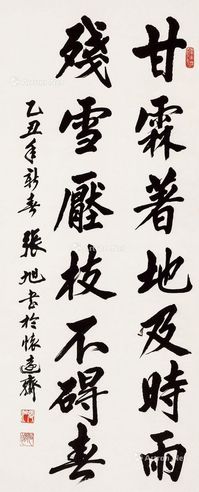 甘霖著地及時雨
殘雪壓枝不碍春
乙丑年新春張旭書於懷遠齋